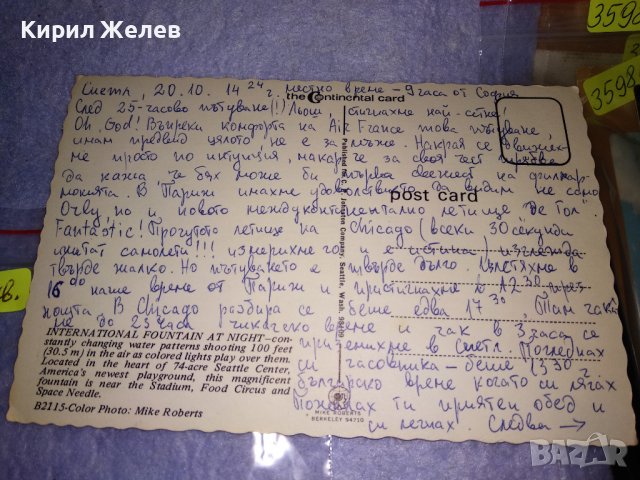 Кирил Желев
3598
3598
Сиетл, 20.10. 14 24 г. местно време – 9 часа от София
the Continental card
След 25-часово пътуване (!!) Льош, стигнахме най-сетне!
Oh, God! Въпреки комфорта на Air France това пътуване,
имам предвид цялото, не е за мъже. Накрая се движех-
ме просто по интуиция, макар че за своя чест трябва
да кажа че бях може би първа на филхар-
монията. В Париж имахме удоволствието да видим не само
post card
Орли, но и новото междуконтинентално летище "De Гол"
Fantastic! Прочутото летище на Chicago (всеки 30 секунди
излитат самолети!!! измерихме го) и е истина изглежда
твърде жалко. Но пътуването е твърде дълго. Излетяхме в
16 00 наше време от Париж и пристигнахме в 12 30 през
нощта. В Chicago разбира се беше едва 17 30. Там чаках-
ме до 23 часа чикагско време и чак в 3 часа се
приземихме в Сиетъл. Погледнах
си часовника – беше 13 30 ч.
българско време когато си лягах
Пожелах ти приятен обед и
си легнах. Следва →
Published by C. P. Johnston Company, Seattle, Wash.
INTERNATIONAL FOUNTAIN AT NIGHT—con-
stantly changing water patterns shooting 100 feet
(30.5 m) in the air as colored lights play over them.
Located in the heart of 74-acre Seattle Center,
America's newest playground, this magnificent
fountain is near the Stadium, Food Circus and
Space Needle.
B2115-Color Photo: Mike Roberts
MIKE ROBERTS
BERKELEY 94710
кв.
bazar